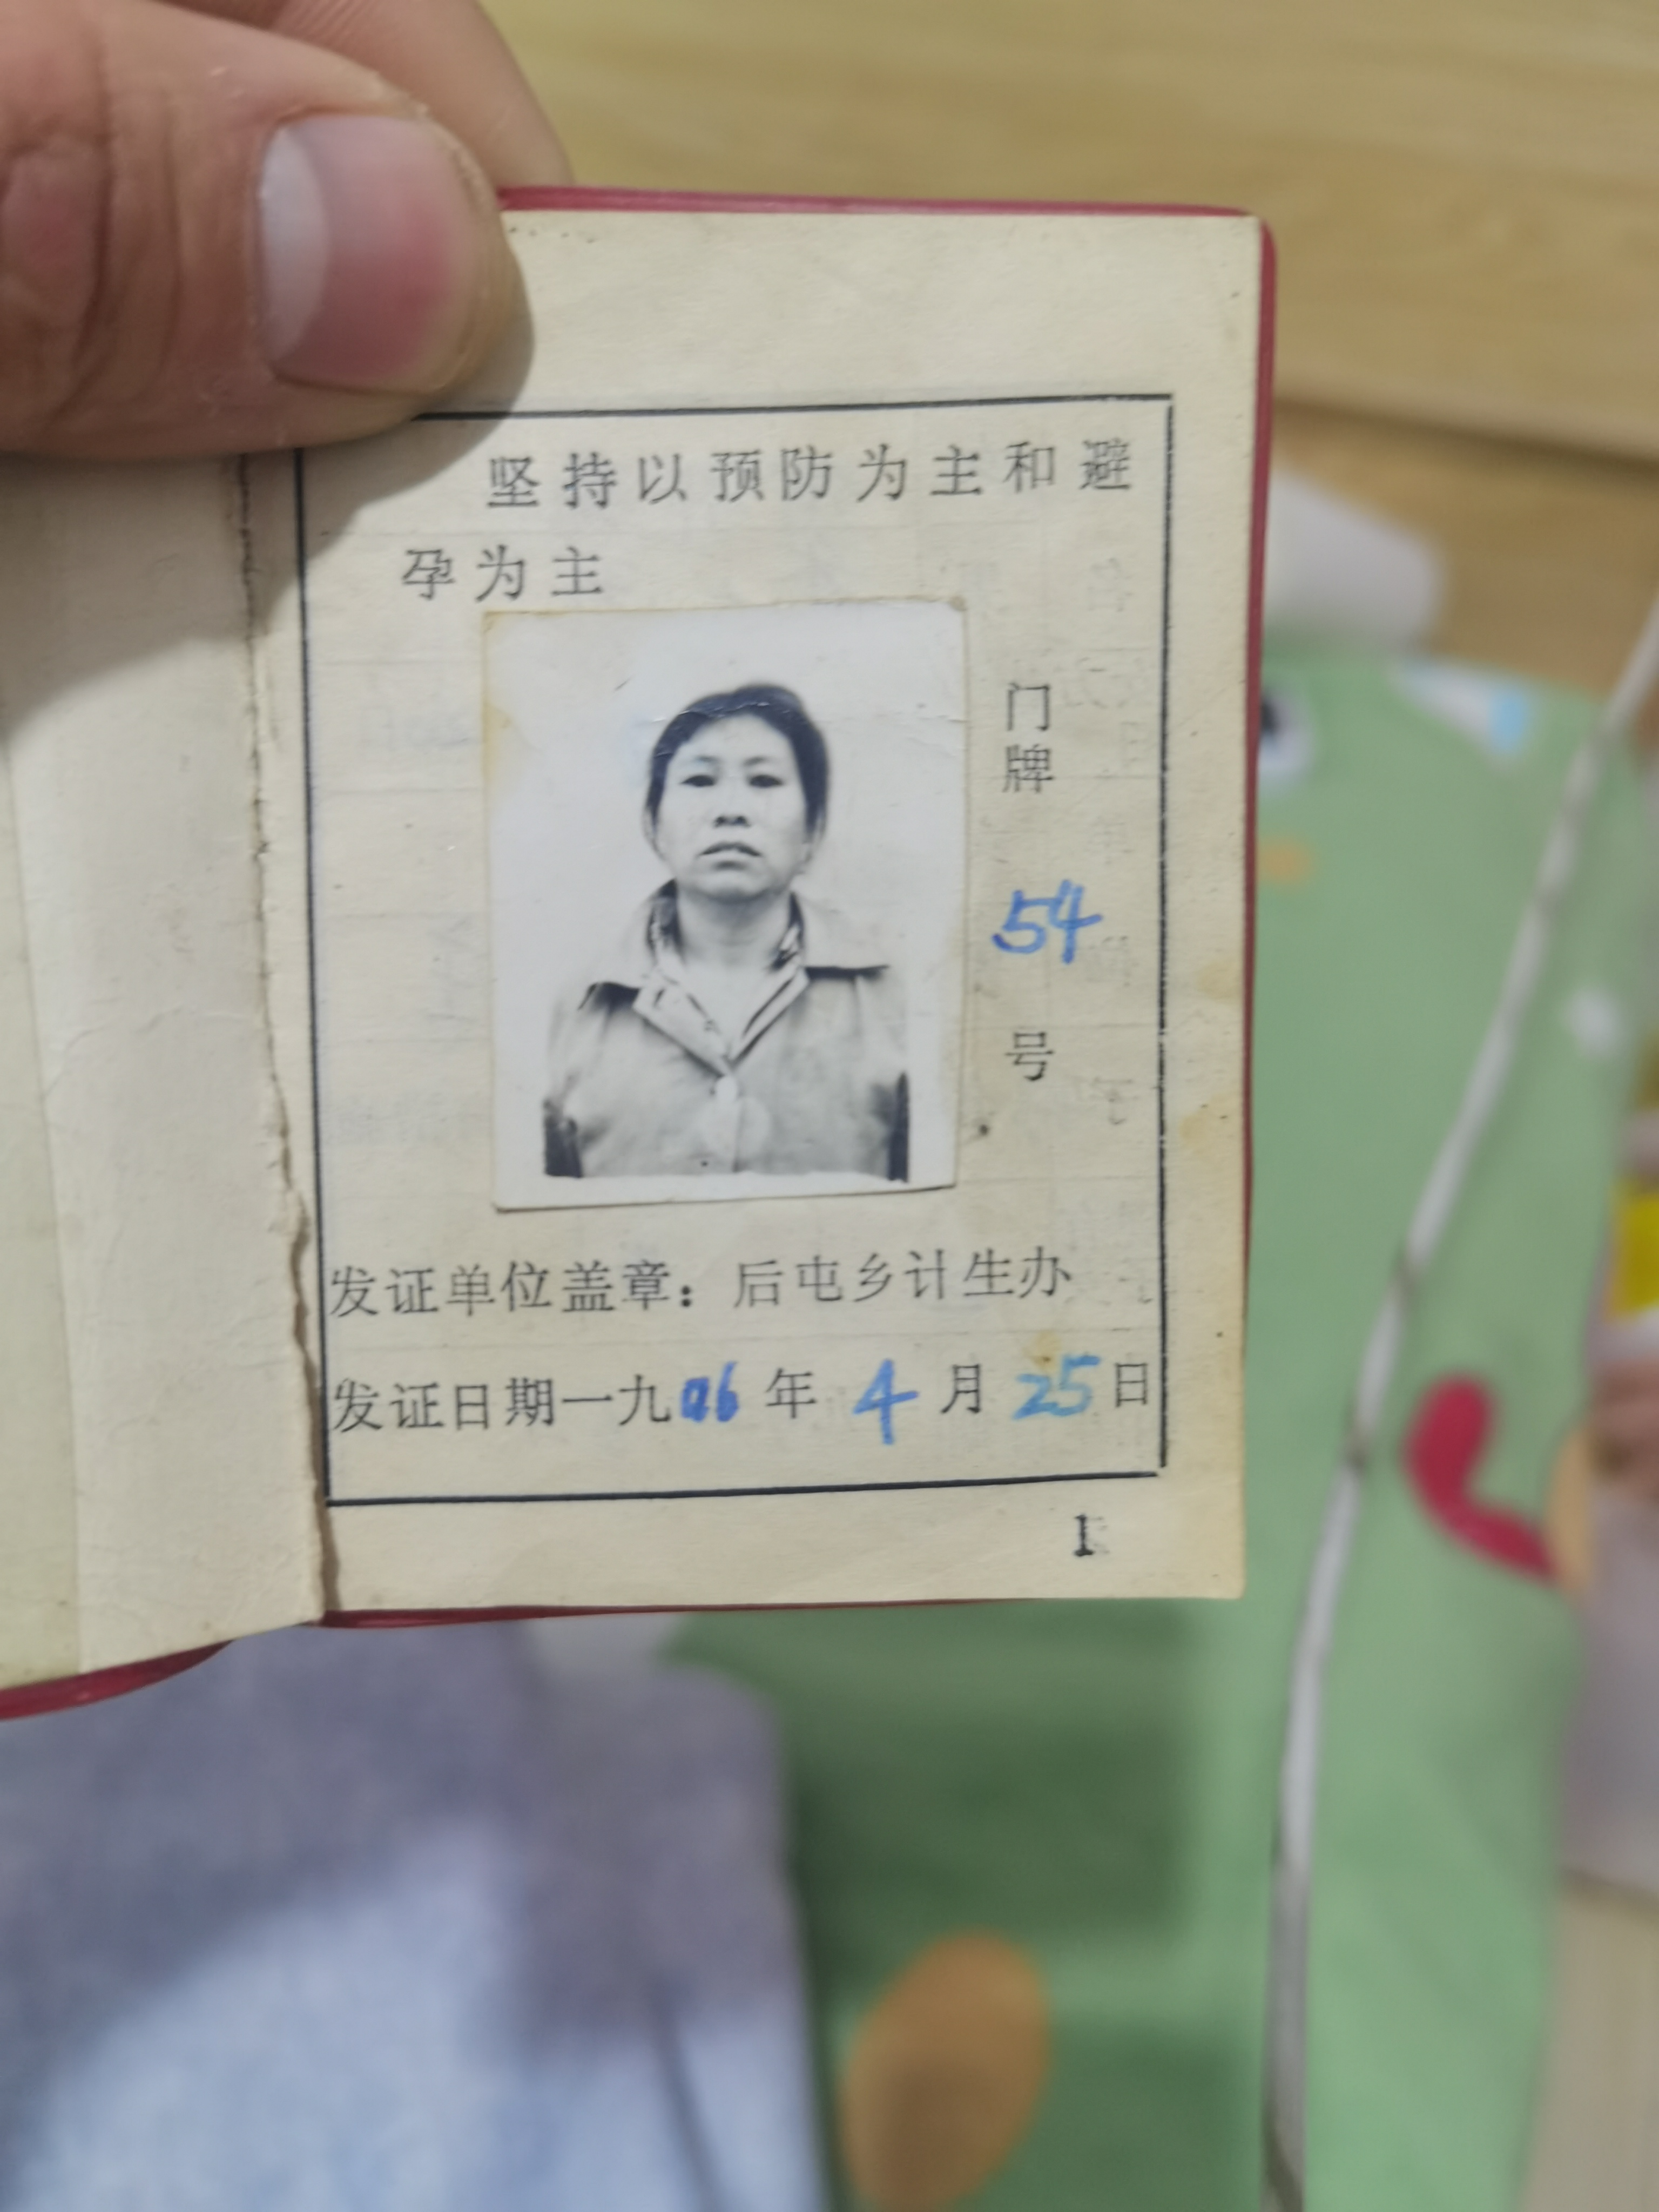 坚持以预防为主和避
孕为主
门牌 54 号
发证单位盖章：后屯乡计生办
发证日期一九96年4月25日
1